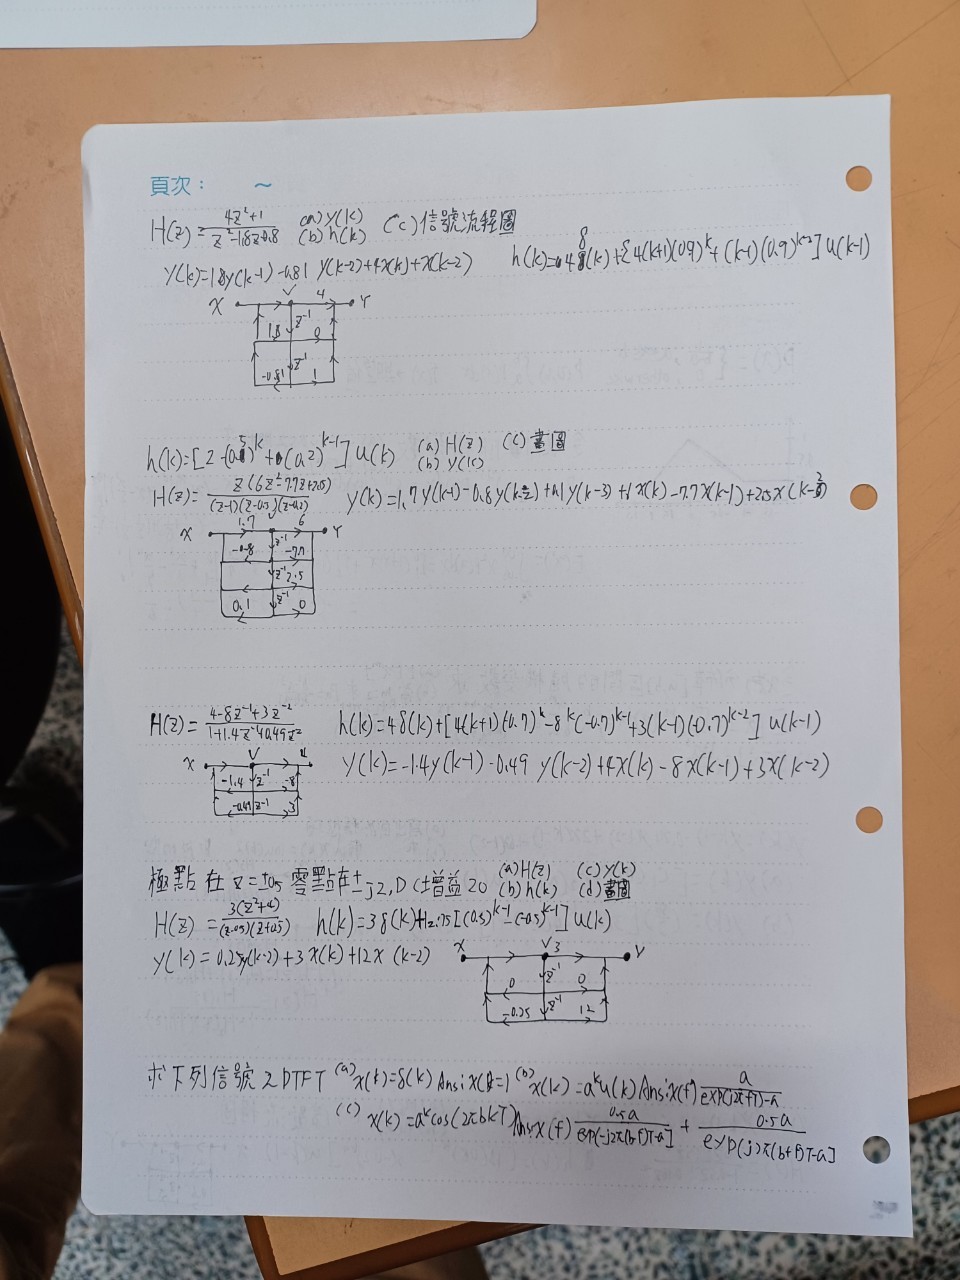 頁次： ~
H(z)=\frac{4z²+1}{z²-1.8z+0.8} (a) y(k) (b) h(k) (c) 信號流程圖
y(k)=1.8y(k-1)-0.81 y(k-2)+4x(k)+x(k-2)
h(k)=4δ(k)+{4(k+1)(0.9)^k+(k-1)(0.9)^{k-2}]u(k-1)
X V 4 Y
1.8 z⁻¹ 0
-0.81 z⁻¹ 1
h(k)=[2-(0.5)^k+(0.2)^{k-1}]u(k) (a) H(z) (b) y(k) (c) 畫圖
H(z)=\frac{z(6z²-7.7z+2.5)}{(z-1)(z-0.5)(z-0.2)} y(k)=1.7y(k-1)-0.8y(k-2)+0.1y(k-3)+6x(k)-7.7x(k-1)+2.5x(k-2)
X 1.7 6 Y
-0.8 z⁻¹ -7.7
z⁻¹ 2.5
0.1 z⁻¹ 0
H(z)=\frac{4-8z⁻¹+3z⁻²}{1+1.4z⁻¹+0.49z⁻²} h(k)=4δ(k)+[4(k+1)(-0.7)^k-8k(-0.7)^{k-1}+3(k-1)(-0.7)^{k-2}] u(k-1)
X V 4
-1.4 z⁻¹ -8
-0.49 z⁻¹ 3
y(k)=-1.4y(k-1)-0.49 y(k-2)+4x(k)-8x(k-1)+3x(k-2)
極點在z=±0.5 零點在±j2,DC增益20 (a) H(z) (b) h(k) (c) y(k) (d) 畫圖
H(z)=\frac{3(z²+4)}{(z-0.5)(z+0.5)} h(k)=3δ(k)+12.75[(0.5)^{k-1}-(-0.5)^{k-1}]u(k)
y(k)=0.25y(k-2)+3x(k)+12x(k-2)
X V 3 Y
0 z⁻¹ 0
-0.25 z⁻¹ 12
求下列信號之DTFT (a) x(k)=δ(k) Ans: X(f)=1 (b) x(k)=a^k u(k) Ans: X(f) \frac{a}{exp(j2πfT)-a}
(c) x(k)=a^k cos(2πbkT) Ans: X(f) \frac{0.5a}{exp[-j2π(b-f)T-a]} + \frac{0.5a}{exp(j2π(b+f)T-a]}